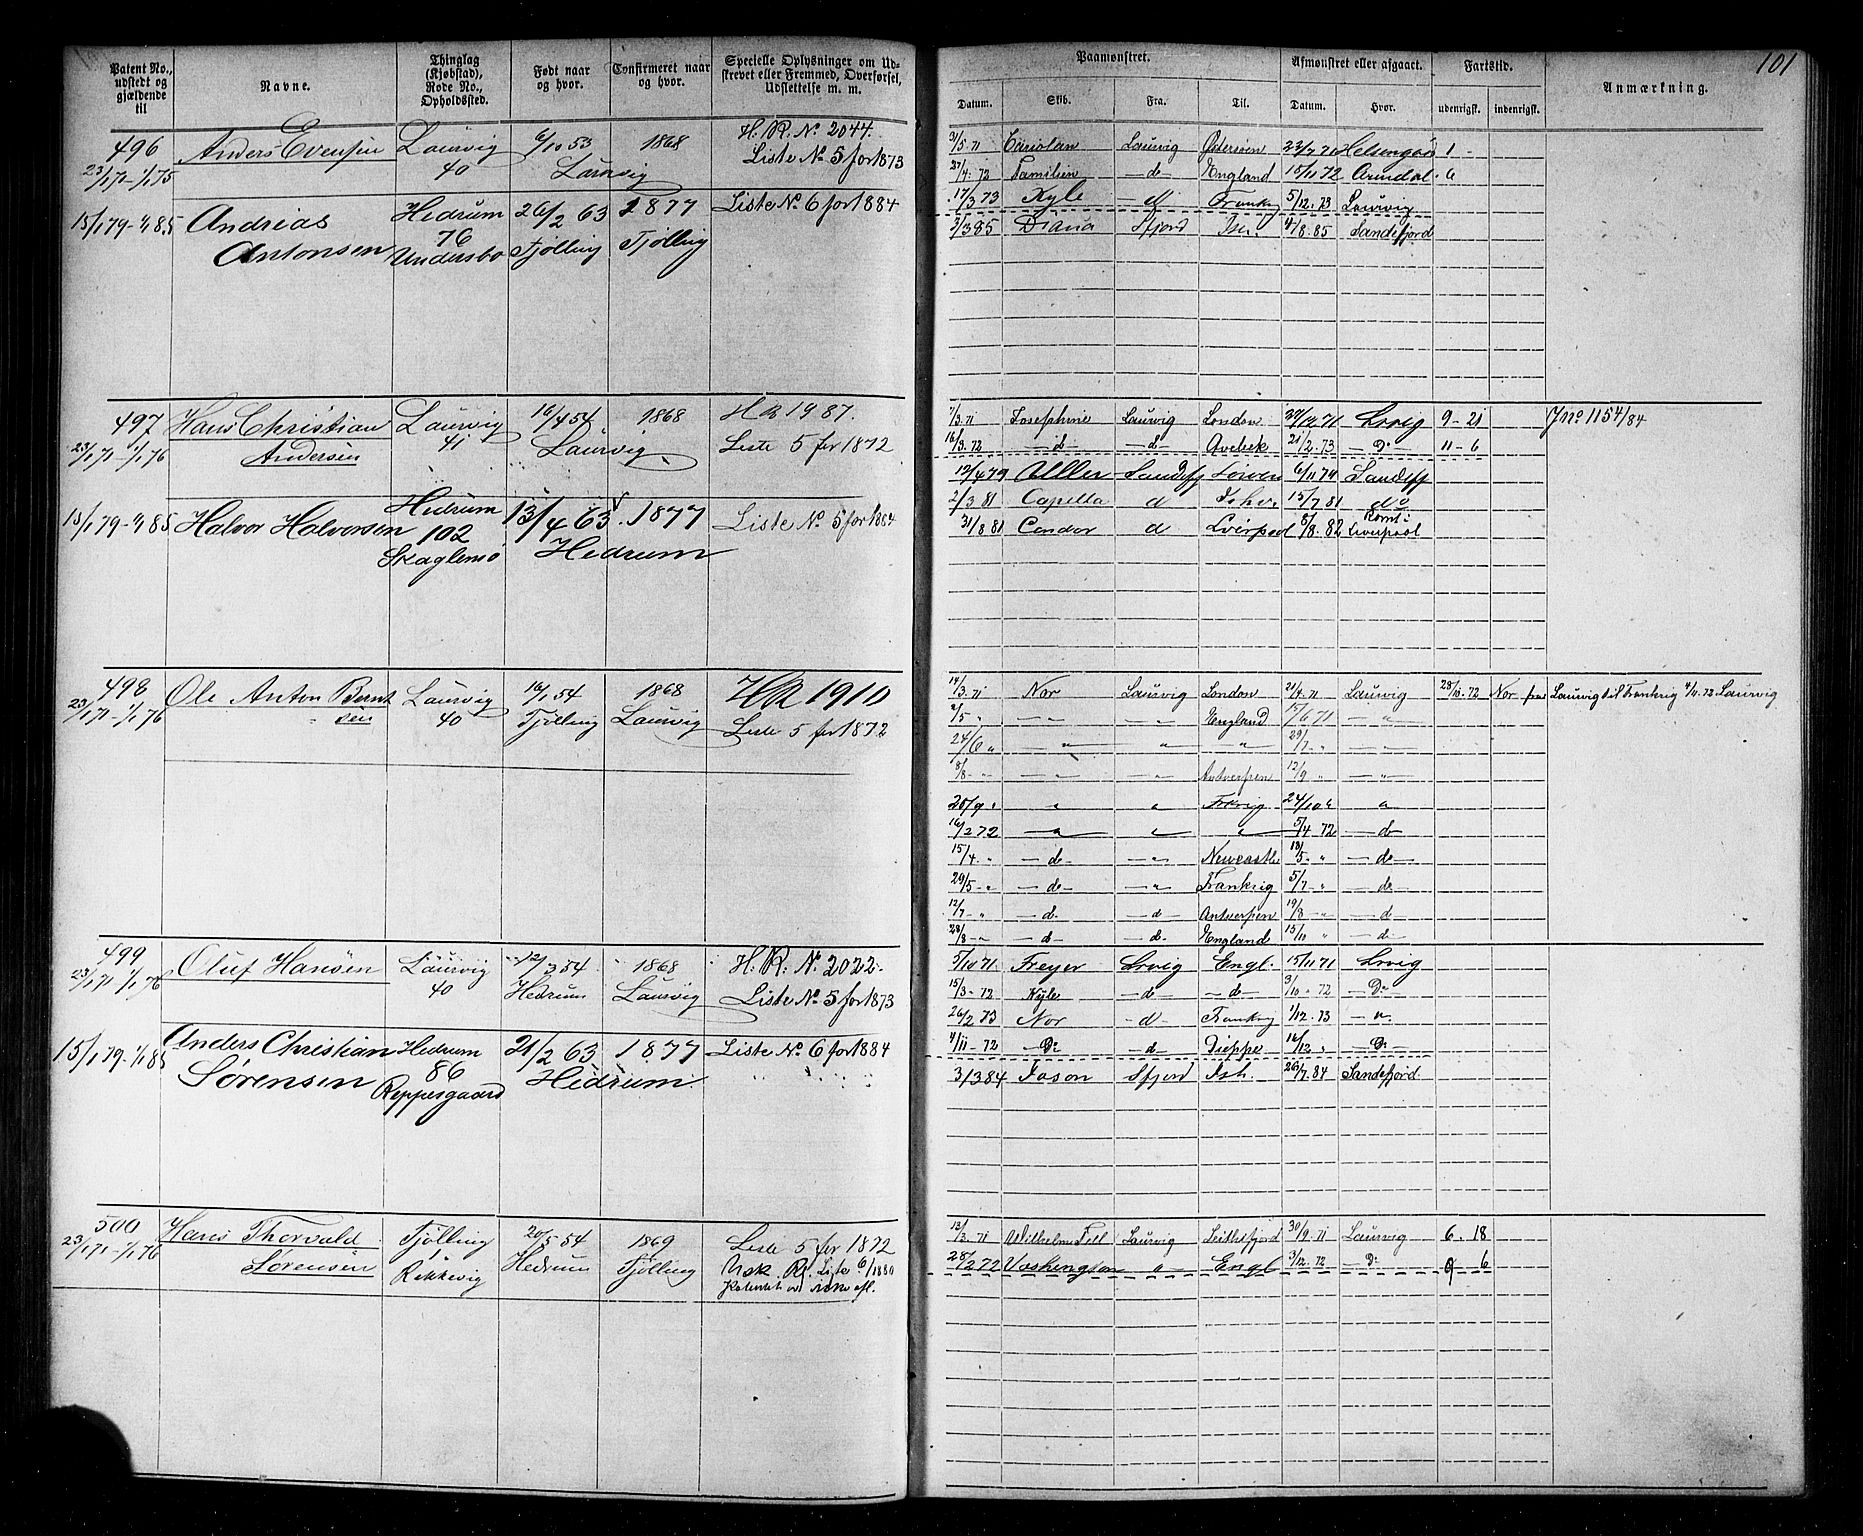 101
Patent No., udstedt og gjældende til
Navne.
Thinglag (Kjøbstad), Rode No., Opholdssted.
Født naar og hvor.
Confirmeret naar og hvor.
Specielle Oplysninger om Udstrevet eller Fremmed, Overførsel, Udslettelse m. m.
Paamønstret.
Afmønstret eller afgaaet.
Fartstid.
Anmærkning.
Datum. Skib. Fra. Til. Datum. Hvor. udenrigst. indenrigst.
496 Anders Evensen Laurvig 6/10 53 1868 H. R. No 2044.
23/1 71 - 1/1 75 40 Laurvig Liste No 5 for 1873
15/1 79 - 1/1 85 Andreas Hedrum 26/2 63 1877 Liste No 6 for 1884
Antonsen 76 Undersbo Tjølling Tjølling
31/5 71 Cariolan Laurvig Østersøen 23/7 71 Helsengaar 1 -
27/4 72 Familien - d - England 15/11 72 Arendal 6
17/3 73 Kyle - d Frankrig 5/12 73 Laurvig
2/3 85 Diana Sfjord Ish. 4/8 85 Sandefjord
497 Hans Christian Laurvig 16/4 54 1868 H R 1987.
23/1 71 - 1/1 76 Andersen 41 Laurvig Liste 5 for 1872
15/1 79 - 1/1 85 Halvor Halvorsen Hedrum 13/4 63 1877 Liste No 5 for 1884
102 Hedrum
Skaglemo
7/3 71 Josephine Laurvig London 30/12 71 Lrvig 9 - 21 Jno 1154/84
16/3 72 - d - - d - 21/2 73 - Do 11 - 6
12/4 79 Sandefj 6/11 79 Sandefj
2/3 81 Capella d Ishav 15/7 81 do
31/8 81 Condor d Lverpool 5/8 82 Rømt i Liverpool
498 Ole Anton Bernt Laurvig 16/1 54 1868 H R 1910
23/1 71 - 1/1 76 sen 40 Tjølling Laurvig Liste 5 for 1872
14/3 71 Nor Laurvig London 21/4 71 Laurvig 28/10 72 Nor fra Laurvig til Frankrig 4/11 72 Laurvig
2/5 " - " - - " - England 15/6 71 - "
24/6 " - " - " - " - 29/7 - " - " -
8/8 - " - " - - " - Antverpen 12/9 " - " -
20/9 " " " Frkrig 24/10 " "
16/2 72 - " " " 5/4 72 - d -
15/4 " - d - - " - Newcastle 18/5 " - d -
29/5 - " - d - - " Frankrig 5/7 - " - d -
12/7 - " - d - - d - Antverpen 19/8 - " - d
28/8 - " - d - - d - England 15/10 " - d -
499 Oluf Hansen Laurvig 12/3 54 1868 H. R. No 2022.
23/1 71 - 1/1 76 40 Hedrum Laurvig Liste No 5 for 1873
15/1 79 - 1/1 85 Anders Christian Hedrum 21/2 63 1877 Liste No 6 for 1884
Sørensen 86 Hedrum
Reppesgaard
3/10 71 Freyer Lrvig Engl. 15/11 71 Lrvig
15/3 - 72 Kyle - d - - d - 3/10 72 - Do
26/2 73 Nor - d - Frankrig 1/12 73 - "
4/11 - 72 - Do - d - Dieppe 16/12 " - Do
3/3 84 Jason Sfjord Ish. 26/7 84 Sandefjord
500 Hans Thorvald Tjølling 20/5 54 1869 Liste 5 for 1872
23/1 71 - 1/1 76 Sørensen 1 Hedrum Tjølling Udsk. R. Liste 6/1880
Rekkevig Patentet ikke afl.
13/3 71 Wilhelm Tell Laurvig 30/9 71 Laurvig 6. 18
28/2 72 Vashington " Engl 3/12 72 - Do 9 6